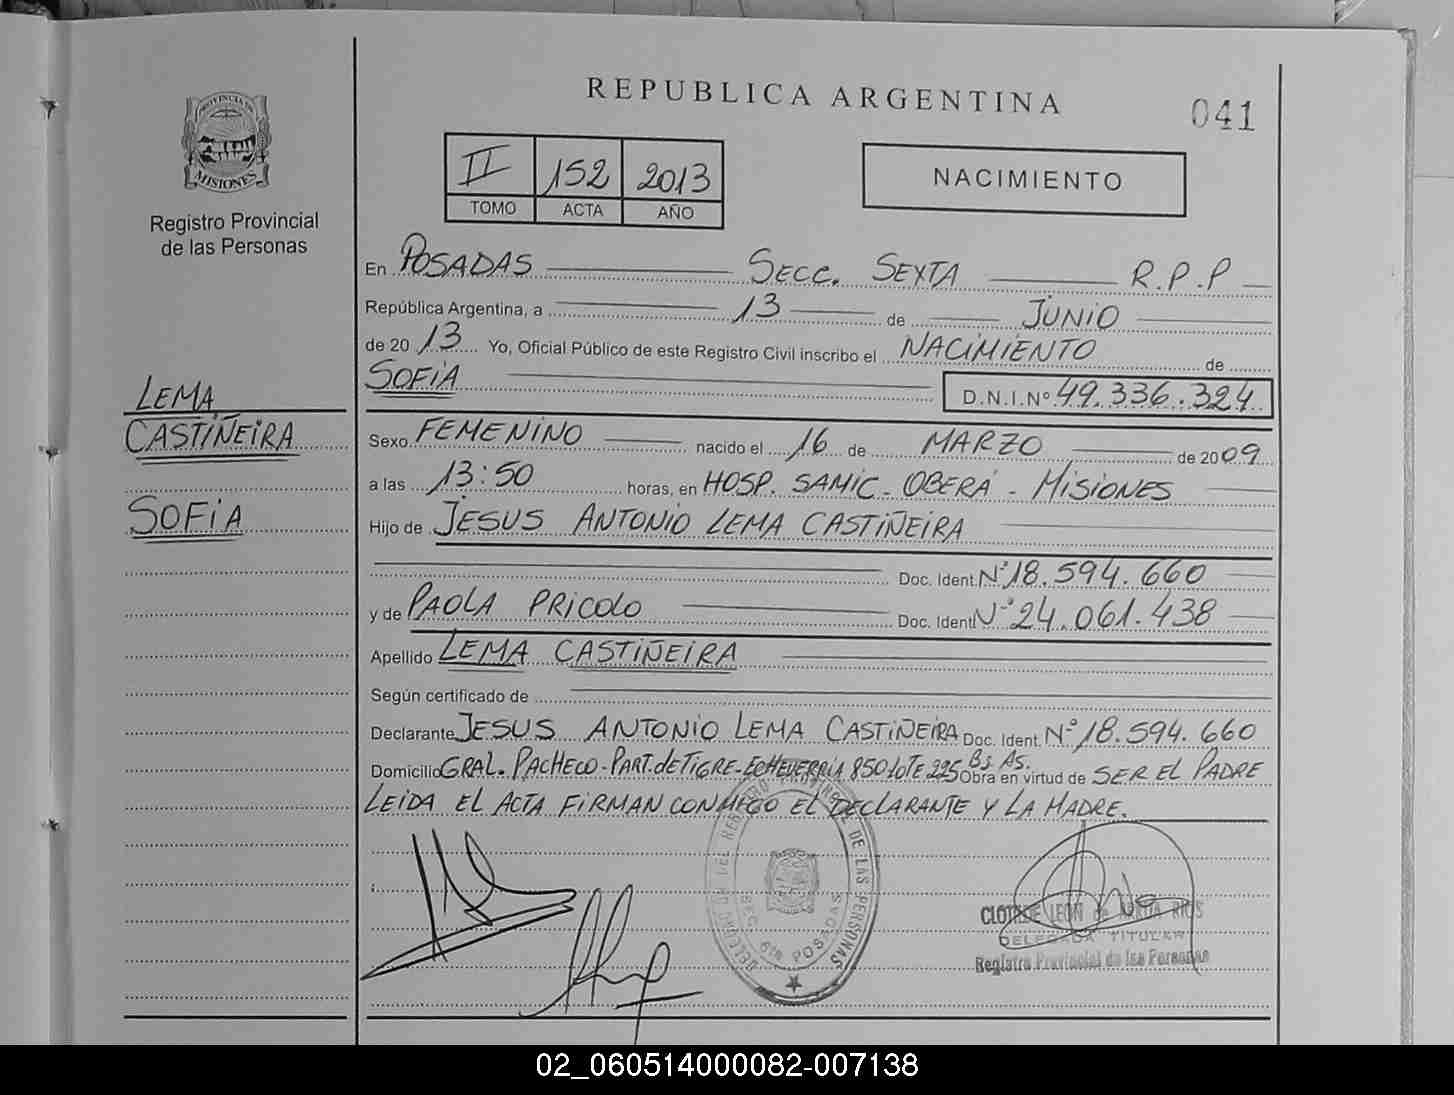 REPUBLICA ARGENTINA
041
PROVINCIA DE
MISIONES
Registro Provincial
de las Personas
II 152 2013
TOMO ACTA AÑO
NACIMIENTO
En POSADAS SECC. SEXTA R.P.P
República Argentina, a 13 de JUNIO
de 20 13 Yo, Oficial Público de este Registro Civil inscribo el NACIMIENTO de
SOFIA D.N.I.Nº 49.336.324
LEMA
CASTIÑEIRA
SOFIA
Sexo FEMENINO nacido el 16 de MARZO de 2009
a las 13:50 horas, en HOSP. SAMIC - OBERÁ - MISIONES
Hijo de JESUS ANTONIO LEMA CASTIÑEIRA
Doc. Ident. Nº 18.594.660
y de PAOLA PRICOLO Doc. Ident. Nº 24.061.438
Apellido LEMA CASTIÑEIRA
Según certificado de
Declarante JESUS ANTONIO LEMA CASTIÑEIRA Doc. Ident. Nº 18.594.660
Domicilio GRAL. PACHECO - PART. de TIGRE - ECHEVERRIA 850 LOTE 225 Bs As. Obra en virtud de SER EL PADRE
LEIDA EL ACTA FIRMAN CONMIGO EL DECLARANTE Y LA MADRE.
DE LAS PERSONAS
SEC. 6ta POSADAS
CLOTILDE LEON de RIOS
DELEGADA TITULAR
Registro Provincial de las Personas
02_060514000082-007138